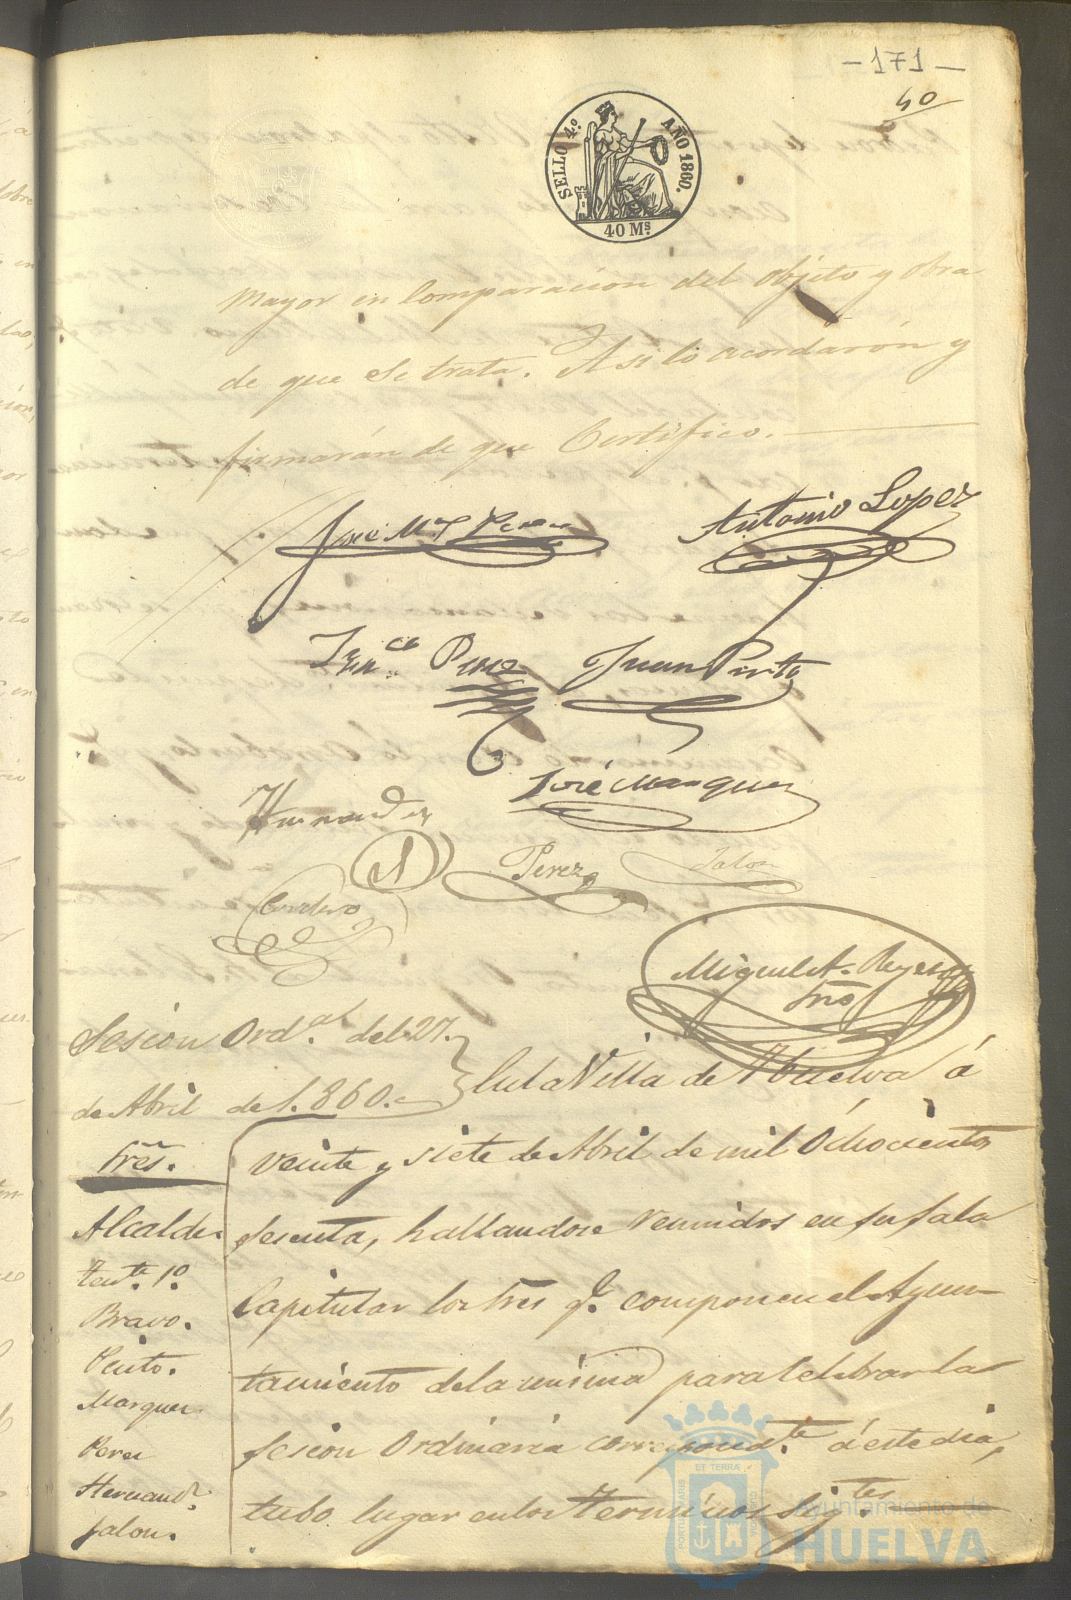 -171-
40
SELLO 4.º AÑO 1860.
40 Ms.
mayor en Comparacion del objeto y obra
de que se trata. Asi lo acordarón y
firmarán de que Certifico.
José M.ª Perez Antonio Lopez
Fran.co Perez Juan Pinto
José Marquez
Hernandez
Perez Jalon
Cordero
Miguel A. Reyes
Srio
Sesion Ord.ª del 27.
de Abril de 1.860.
Sres.
Alcalde.
Tent.e 1.º
Bravo.
Pinto.
Marquez
Perez
Hernand.z
Jalon.
En la Villa de Huelva á
veinte y siete de Abril de mil Ochocientos
sesenta, hallandose reunidos en su sala
Capitular los Sres q.e componen el Ayun-
tamiento de la misma para celebrar la
sesion Ordinaria correspond.te á este dia,
tubo lugar en los Terminos sig.tes
ET TERRÆ
Ayuntamiento de
HUELVA